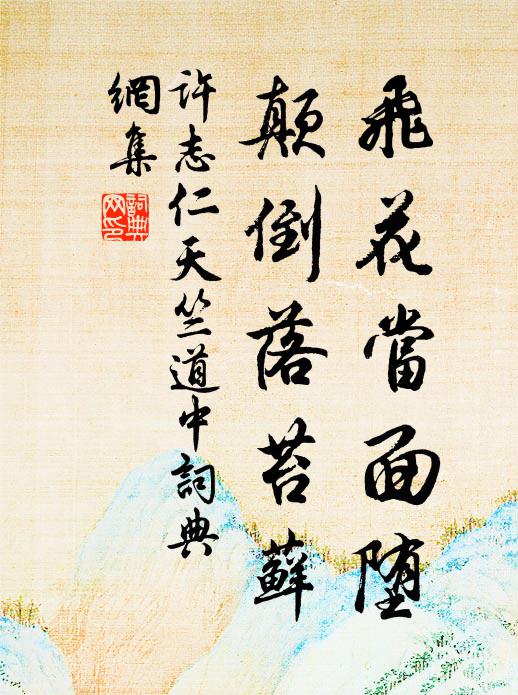 飛花當面墮
顛倒落苔蘚
許志仁天竺道中詞典
網集
詞典
网印